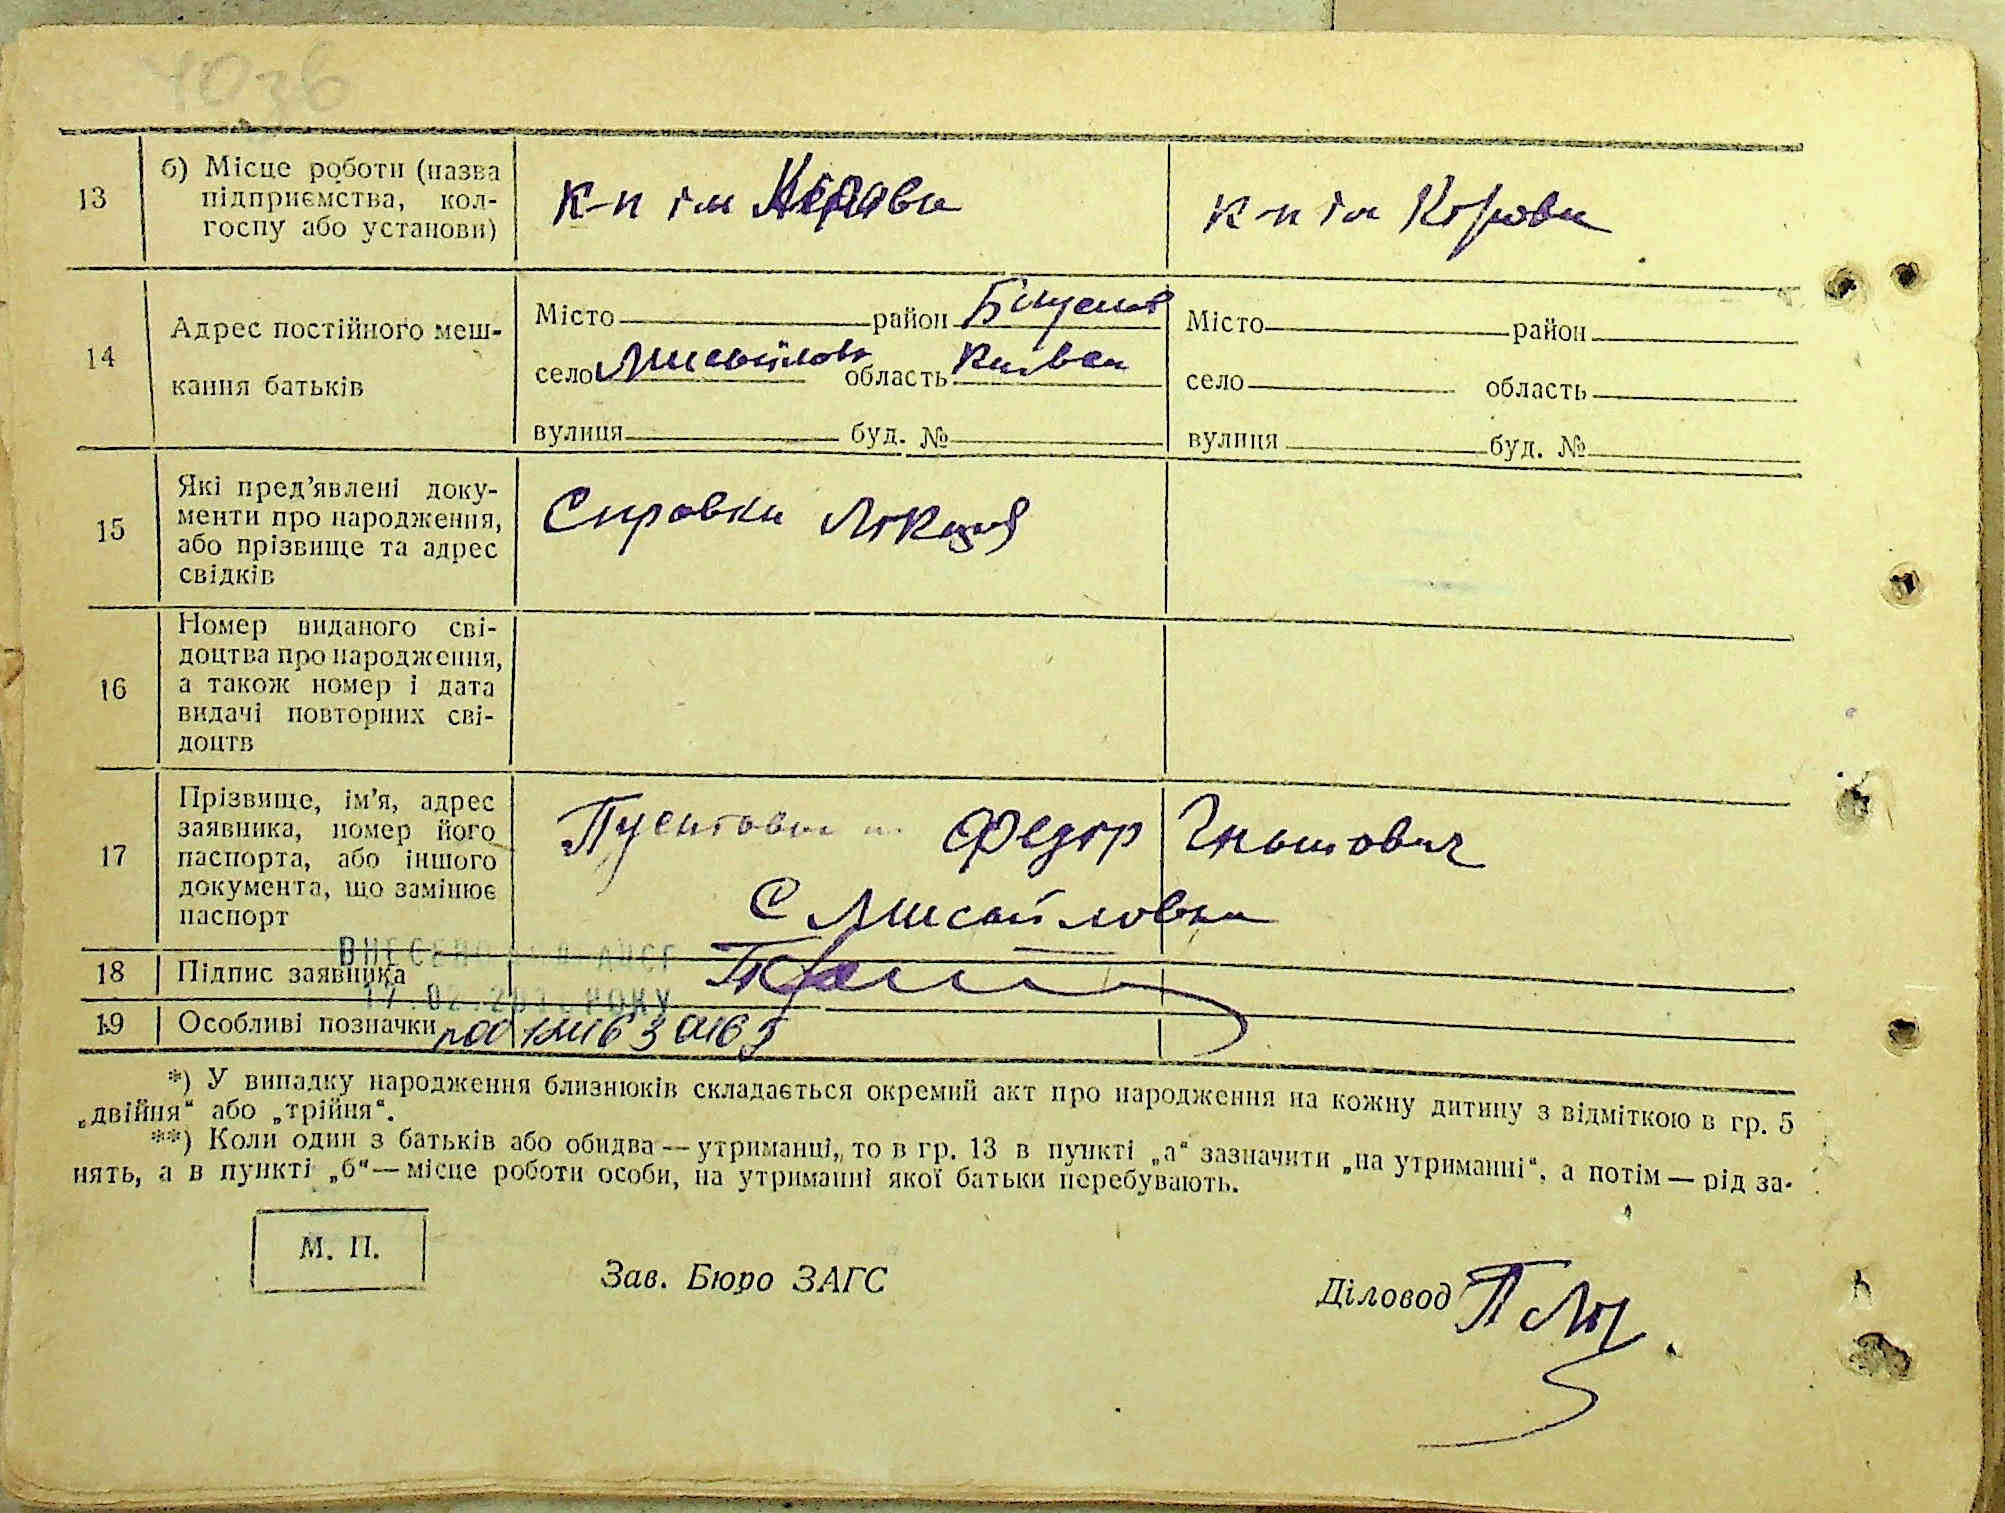 4036
13 б) Місце роботи (назва
підприємства, кол-
госпу або установи)
к-п ім Кірова к-п ім Кірова
14 Адрес постійного меш-
кання батьків
Місто район Місто район
село область Київск село область
вулиця буд. № вулиця буд. №
15 Які пред’явлені доку-
менти про народження,
або прізвище та адрес
свідків
Справки
16 Номер виданого сві-
доцтва про народження,
а також номер і дата
видачі повторних сві-
доцтв
17 Прізвище, ім’я, адрес
заявника, номер його
паспорта, або іншого
документа, що замінює
паспорт
Федір Гнатович
С Мисайловка
ВНЕСЕНО ДРАЦСГ
18 Підпис заявника
РОКУ
19 Особливі позначки
*) У випадку народження близнюків складається окремий акт про народження на кожну дитину з відміткою в гр. 5
„двійня“ або „трійня“.
**) Коли один з батьків або обидва — утриманці, то в гр. 13 в пункті „а“ зазначити „на утриманні“, а потім — рід за-
нять, а в пункті „б“ — місце роботи особи, на утриманні якої батьки перебувають.
М. П.
Зав. Бюро ЗАГС
Діловод